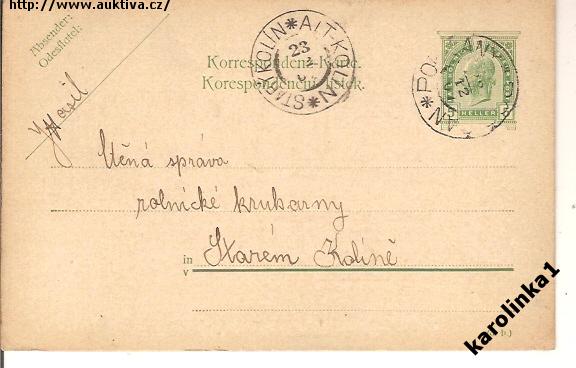 http://www.auktiva.cz/
Absender:
Odesílatel:
Korrespondenz-Karte.
Korespondenční lístek.
STARÝ KOLÍN * ALT-KOLIN *
23
5 HELLER 5
Ctěná správa
rolnické krukarny
in
v
Starém Kolíně
karolinka1